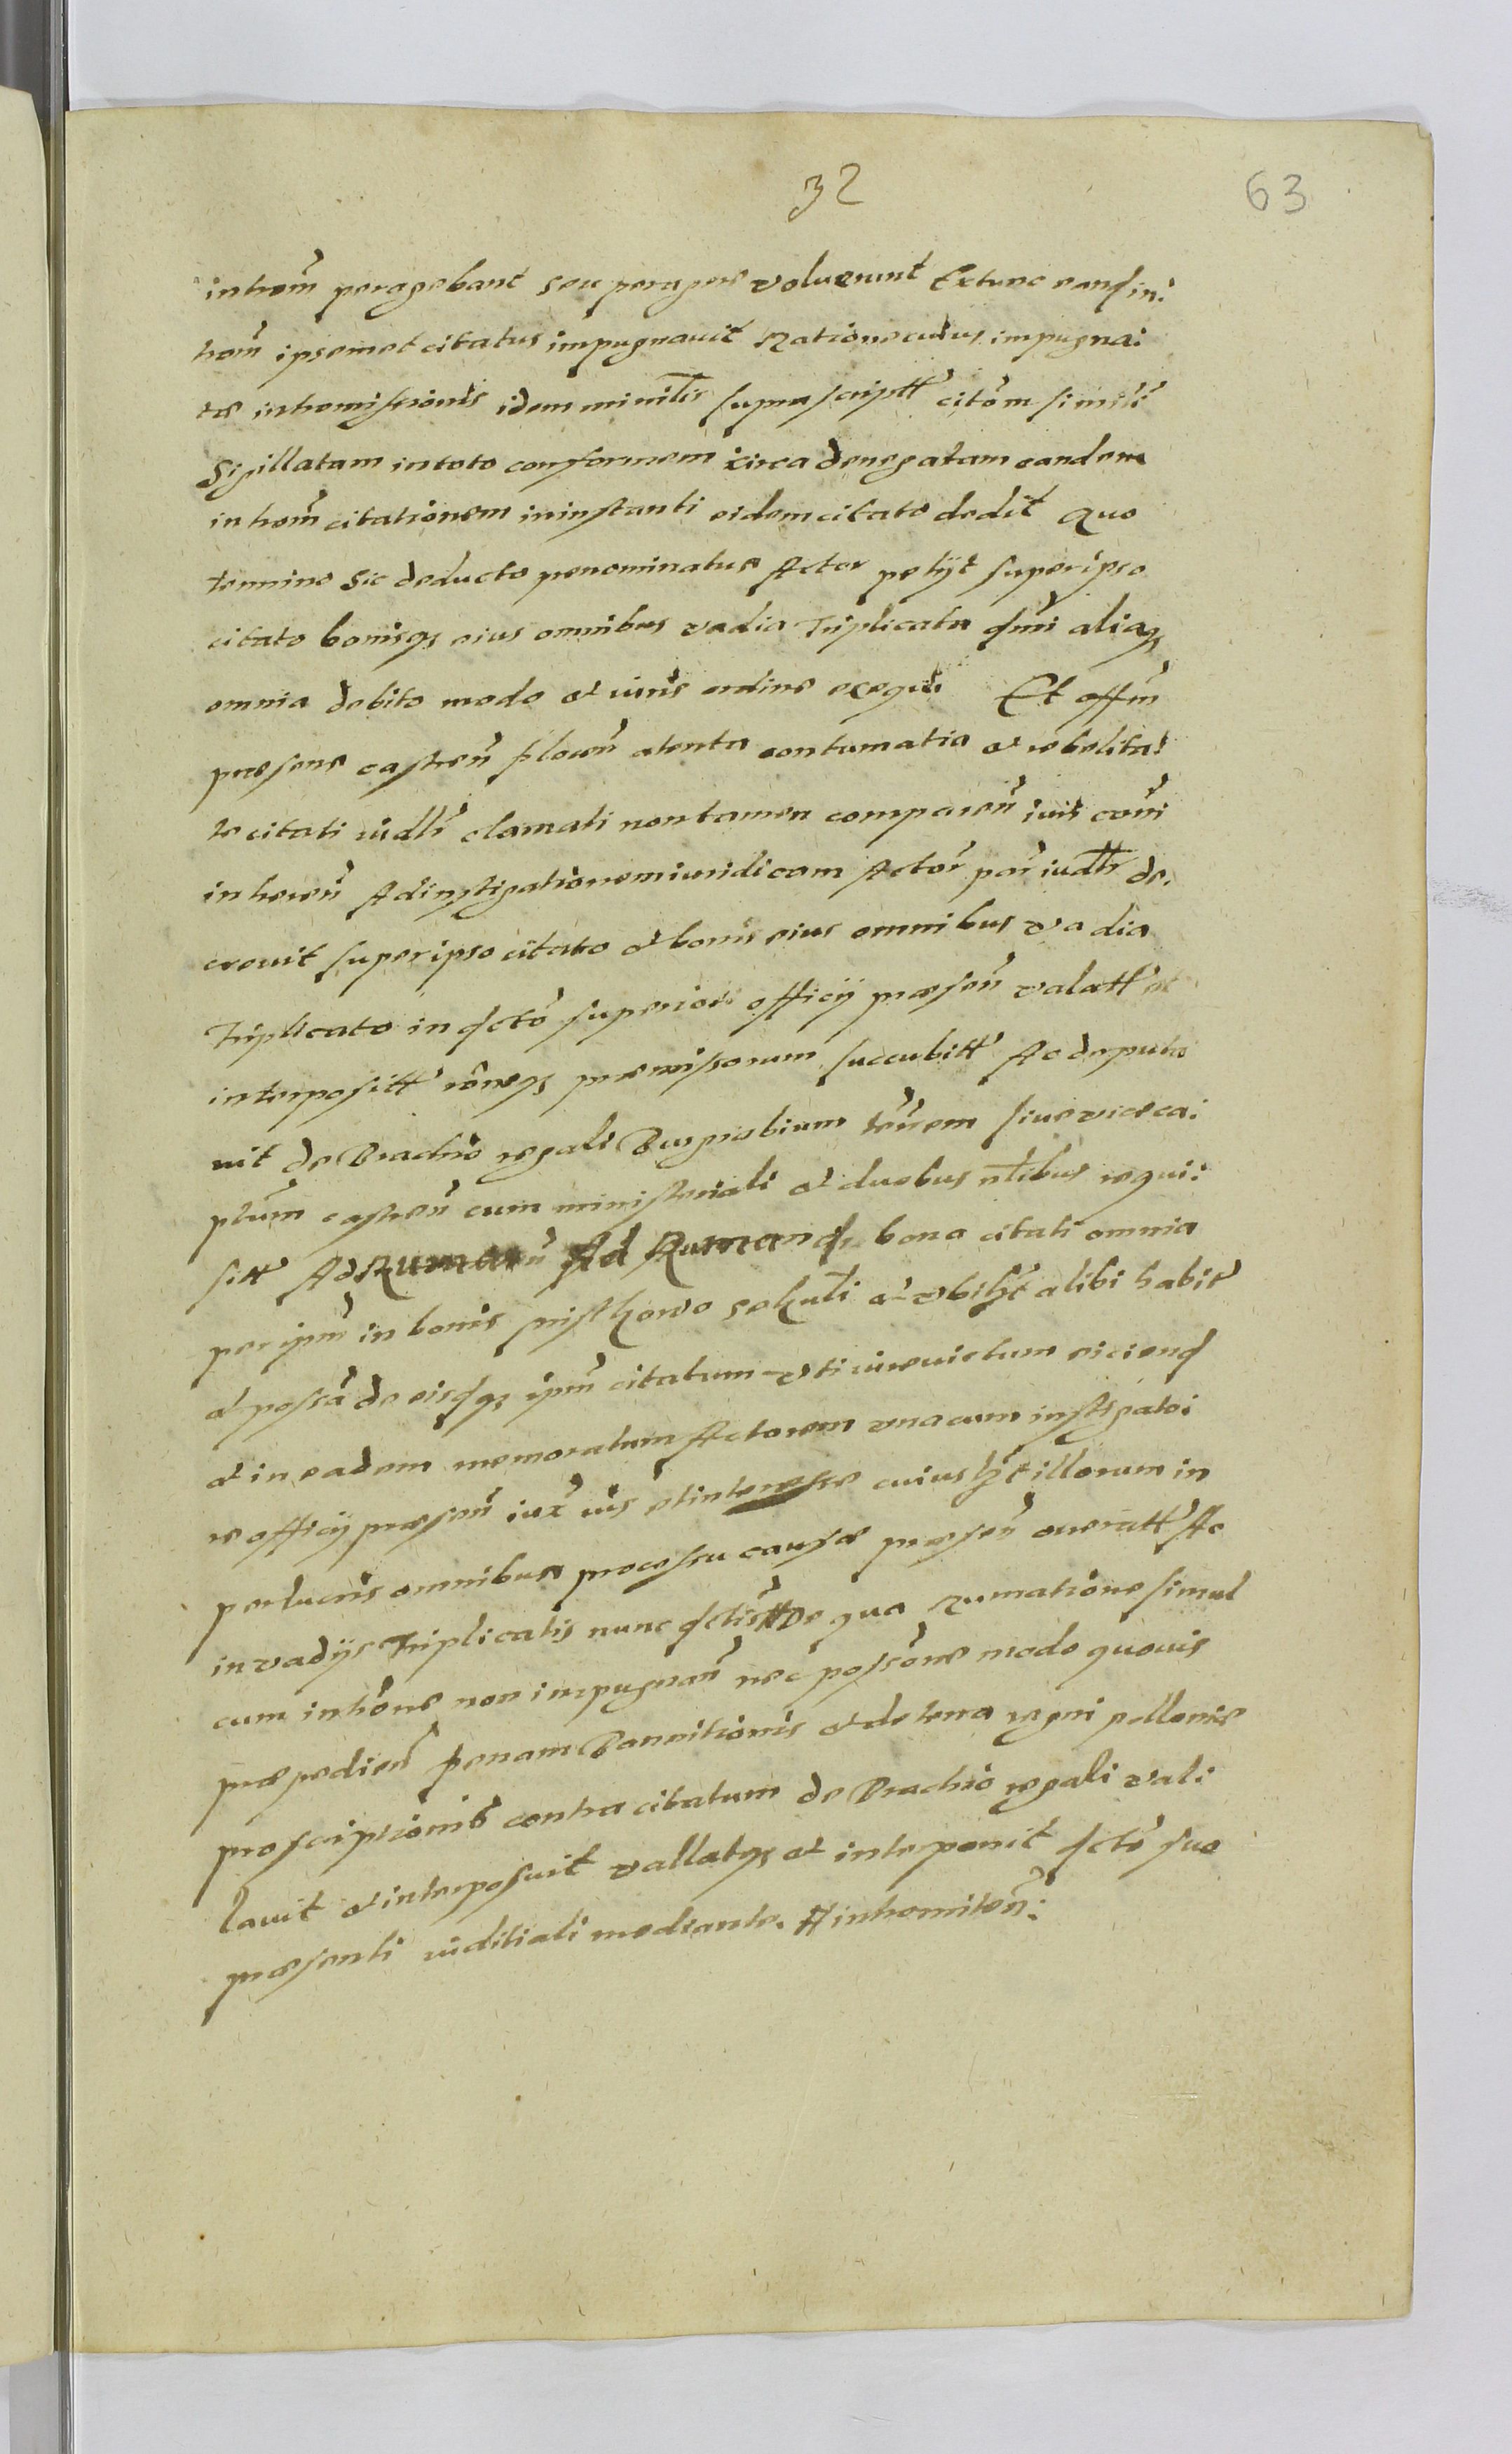 32
63
introm̃ peragebant seu peragere voluerunt Extunc eand in:
trom̃ ipsemet citatus impugnavit Ratione cuius impugna:
tæ intromissionis idem minilis suprascript citõm simili
Sigillatam in toto conformem circa denegatam eandem
introm̃ citationem in instanti eidem citato dedit Quo
termino sic deducto prenominatus Actor petyt super ipso
citato bonisq eius omnibus vadia Triplicata aliaq
omnia debito modo et iuris ordine exequi Et offm̃
præsens castreñ atenta contumatia et rebelita:
te citati iudlr clamati non tamen compareñ iuis com̃i
inhereñ Ad instigationem iuridicam Actor par iudlr de.
crevit super ipso citato et bonis eius omnibus vadia
Triplicato in dcto superiori officij præseñ valatt et
interposit rõneq præmissorum succubitt Ac deputa
vit de Brachio regali Burgrabium terrem sive viceca:
ptm̃ castreñ cum ministeriali et duobus nlibus requi:
sitt Ad Rumand bona citati omnia
per ipm̃ in bonis sekuli et ubilzt alibi habit
et possa de eisdq ipm̃ citatum uti iurevictum eiciend
et in eadem memoratum Actorem una cum instigato:
re officij præseñ iux ius et interesse cuiuslzt illorum in
per lucris omnibus processu causæ præseñ overitt Ac
in vadijs Triplicatis nunc dctis # De qua rumatione simul
cum intrõne non impugnañ nec possõne modo quovis
præpedieñ penam Bannitionis et de terra regni pollonie
proscriptionis contra citatum de Brachio regali val:
lavit et interposuit vallatq et interponit dcto suo
præsenti iuditiali mediante. # intromiteñ: